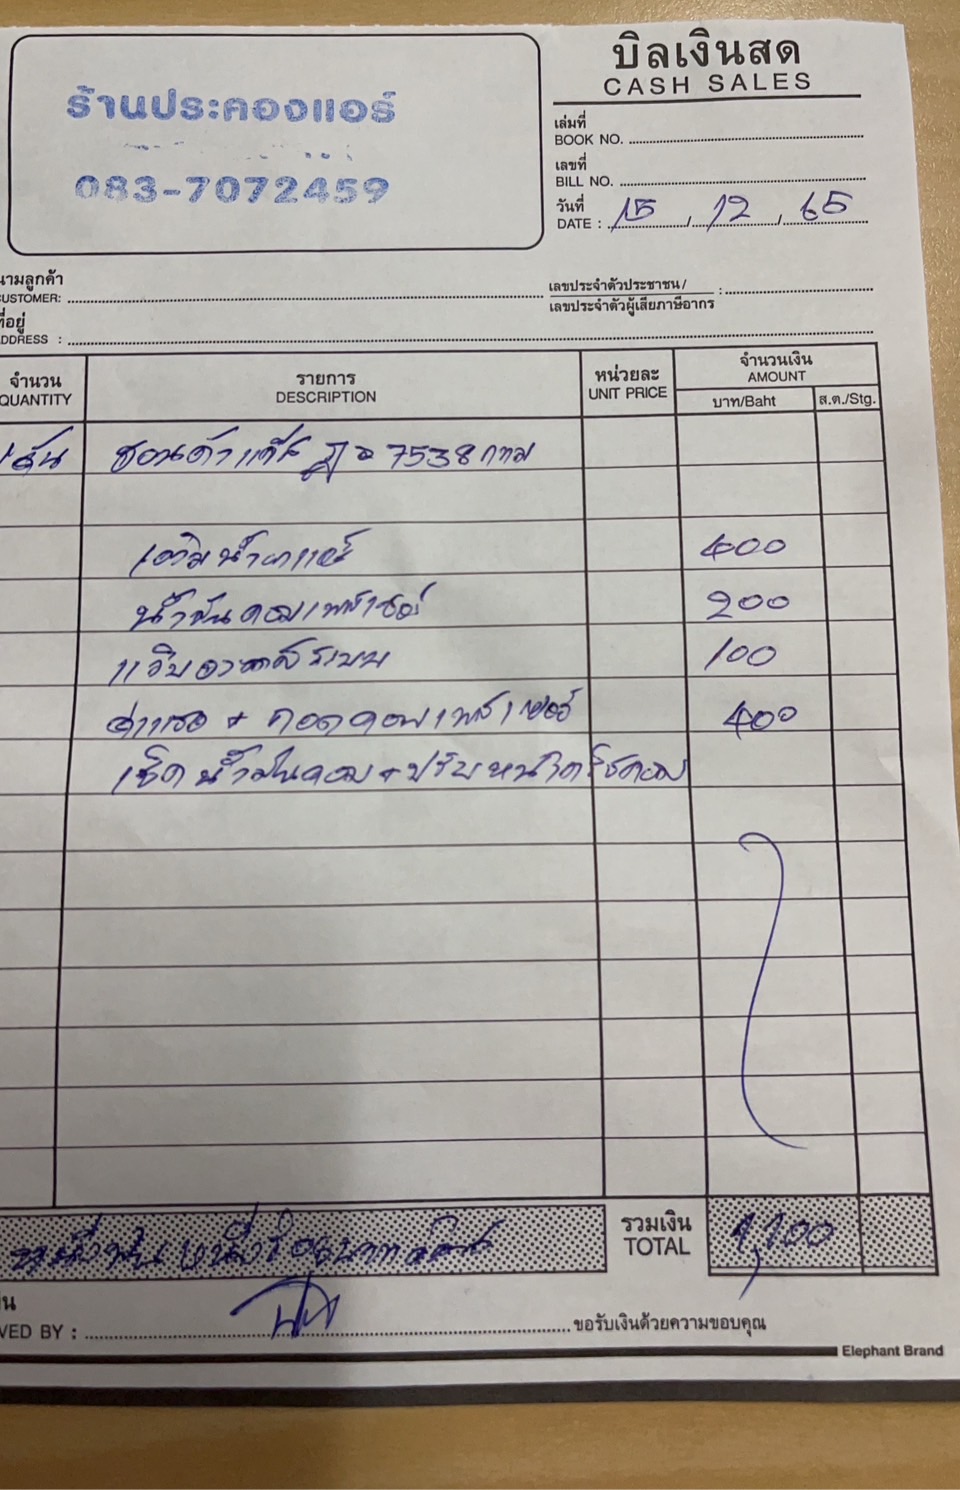 บิลเงินสด
CASH SALES
ร้านประคองแอร์
083-7072459
เล่มที่
BOOK NO.
เลขที่
BILL NO.
วันที่
DATE : 15 / 12 / 65
นามลูกค้า
CUSTOMER:
เลขประจำตัวประชาชน /
เลขประจำตัวผู้เสียภาษีอากร :
ที่อยู่
ADDRESS :
จำนวน รายการ หน่วยละ จำนวนเงิน
QUANTITY DESCRIPTION UNIT PRICE AMOUNT
บาท/Baht ส.ต./Stg.
7538 กทม
เติมน้ำยาแอร์ 400
น้ำมันคอมเพรสเซอร์ 200
แว๊บอากาศระบบ 100
ค่าแรง + ถอดคอมเพรสเซอร์ 400
เช็คน้ำมันคอม + ปรับหน้าครัชคอม
หนึ่งพันหนึ่งร้อยบาทถ้วน
รวมเงิน 1,100
TOTAL
VED BY :
ขอรับเงินด้วยความขอบคุณ
Elephant Brand